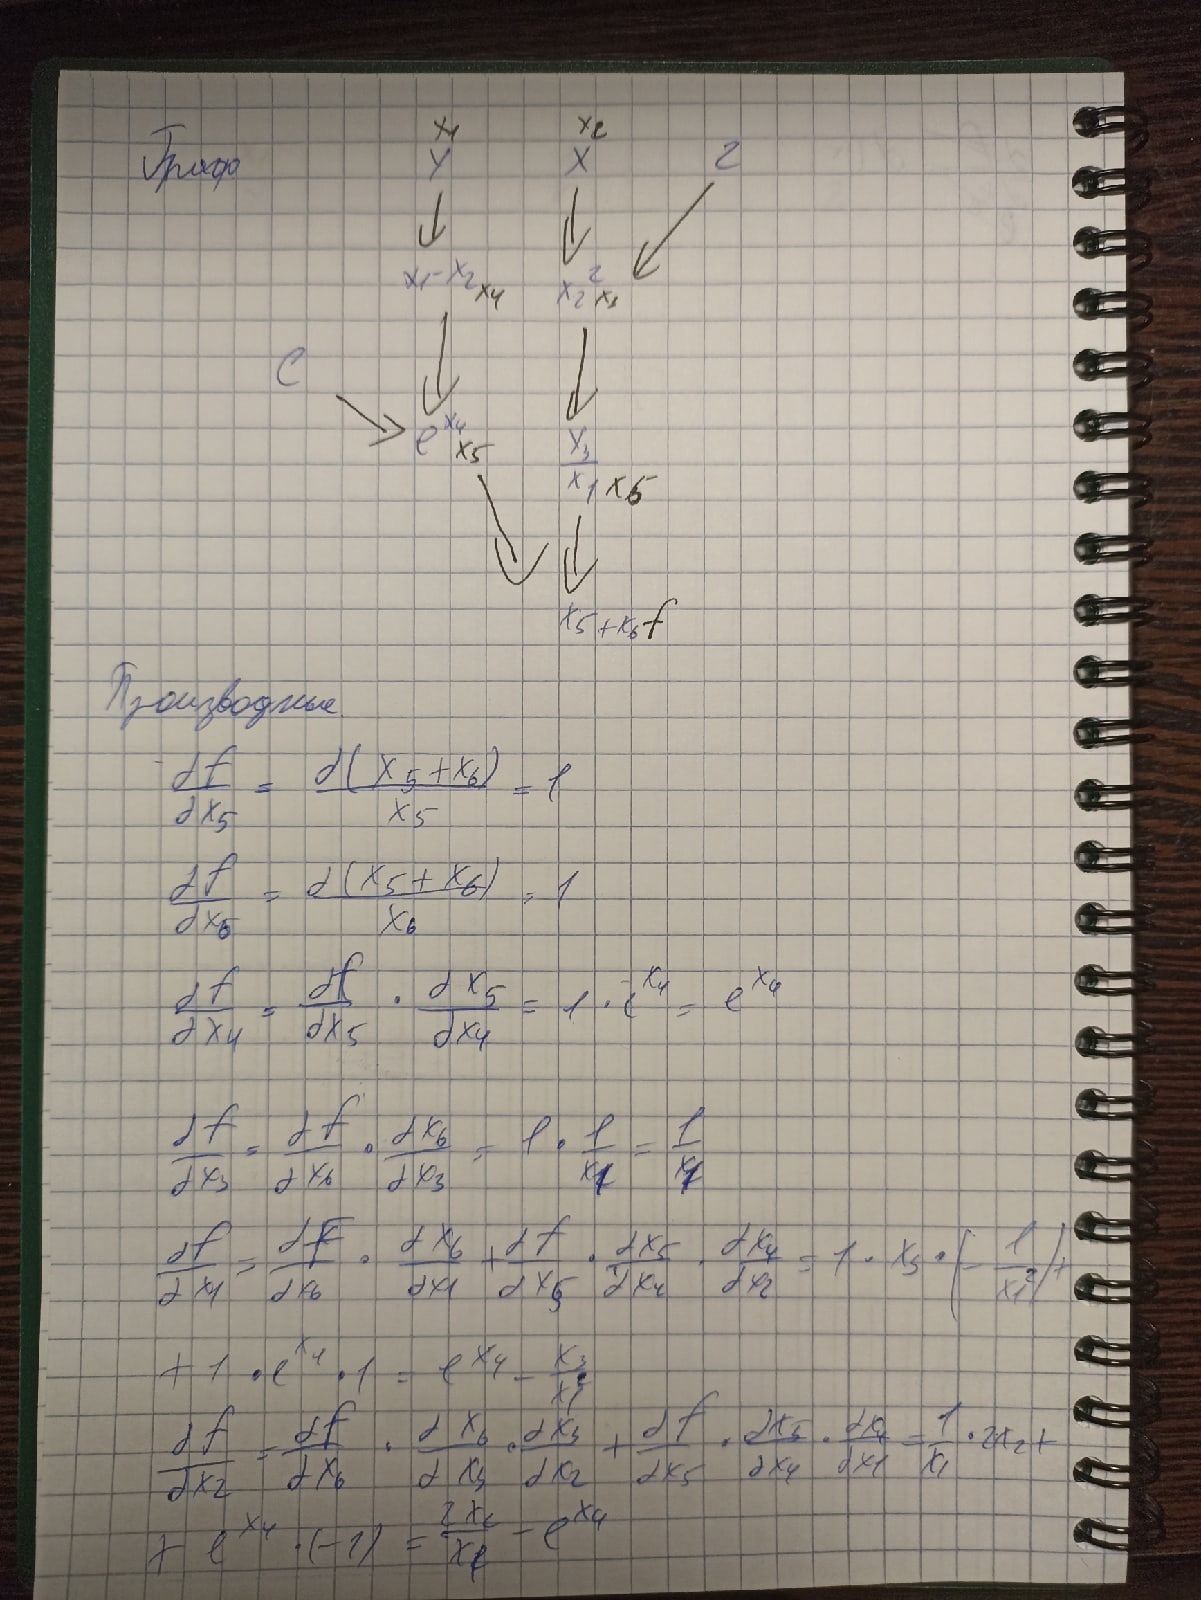 x₁ x₂
Граф Y X 2
x₁-x₂ x₄ x₂² x₃
e
e^x₄ x₅ x₃/x₁ x₆
x₅+x₆ f
Производные
df/dx₅ = d(x₅+x₆)/x₅ = 1
df/dx₆ = d(x₅+x₆)/x₆ = 1
df/dx₄ = df/dx₅ · dx₅/dx₄ = 1 · e^x₄ = e^x₄
df/dx₃ = df/dx₆ · dx₆/dx₃ = 1 · 1/x₁ = 1/x₁
df/dx₁ = df/dx₆ · dx₆/dx₁ + df/dx₅ · dx₅/dx₄ · dx₄/dx₂ = 1 · x₃ · (- 1/x₁²) +
+ 1 · e^x₄ · 1 = e^x₄ - x₃/x₁²
df/dx₂ = df/dx₆ · dx₆/dx₃ · dx₃/dx₂ + df/dx₅ · dx₅/dx₄ · dx₄/dx₁ = 1/x₁ · 2x₂ +
+ e^x₄ · (-1) = 2x₂/x₁ - e^x₄